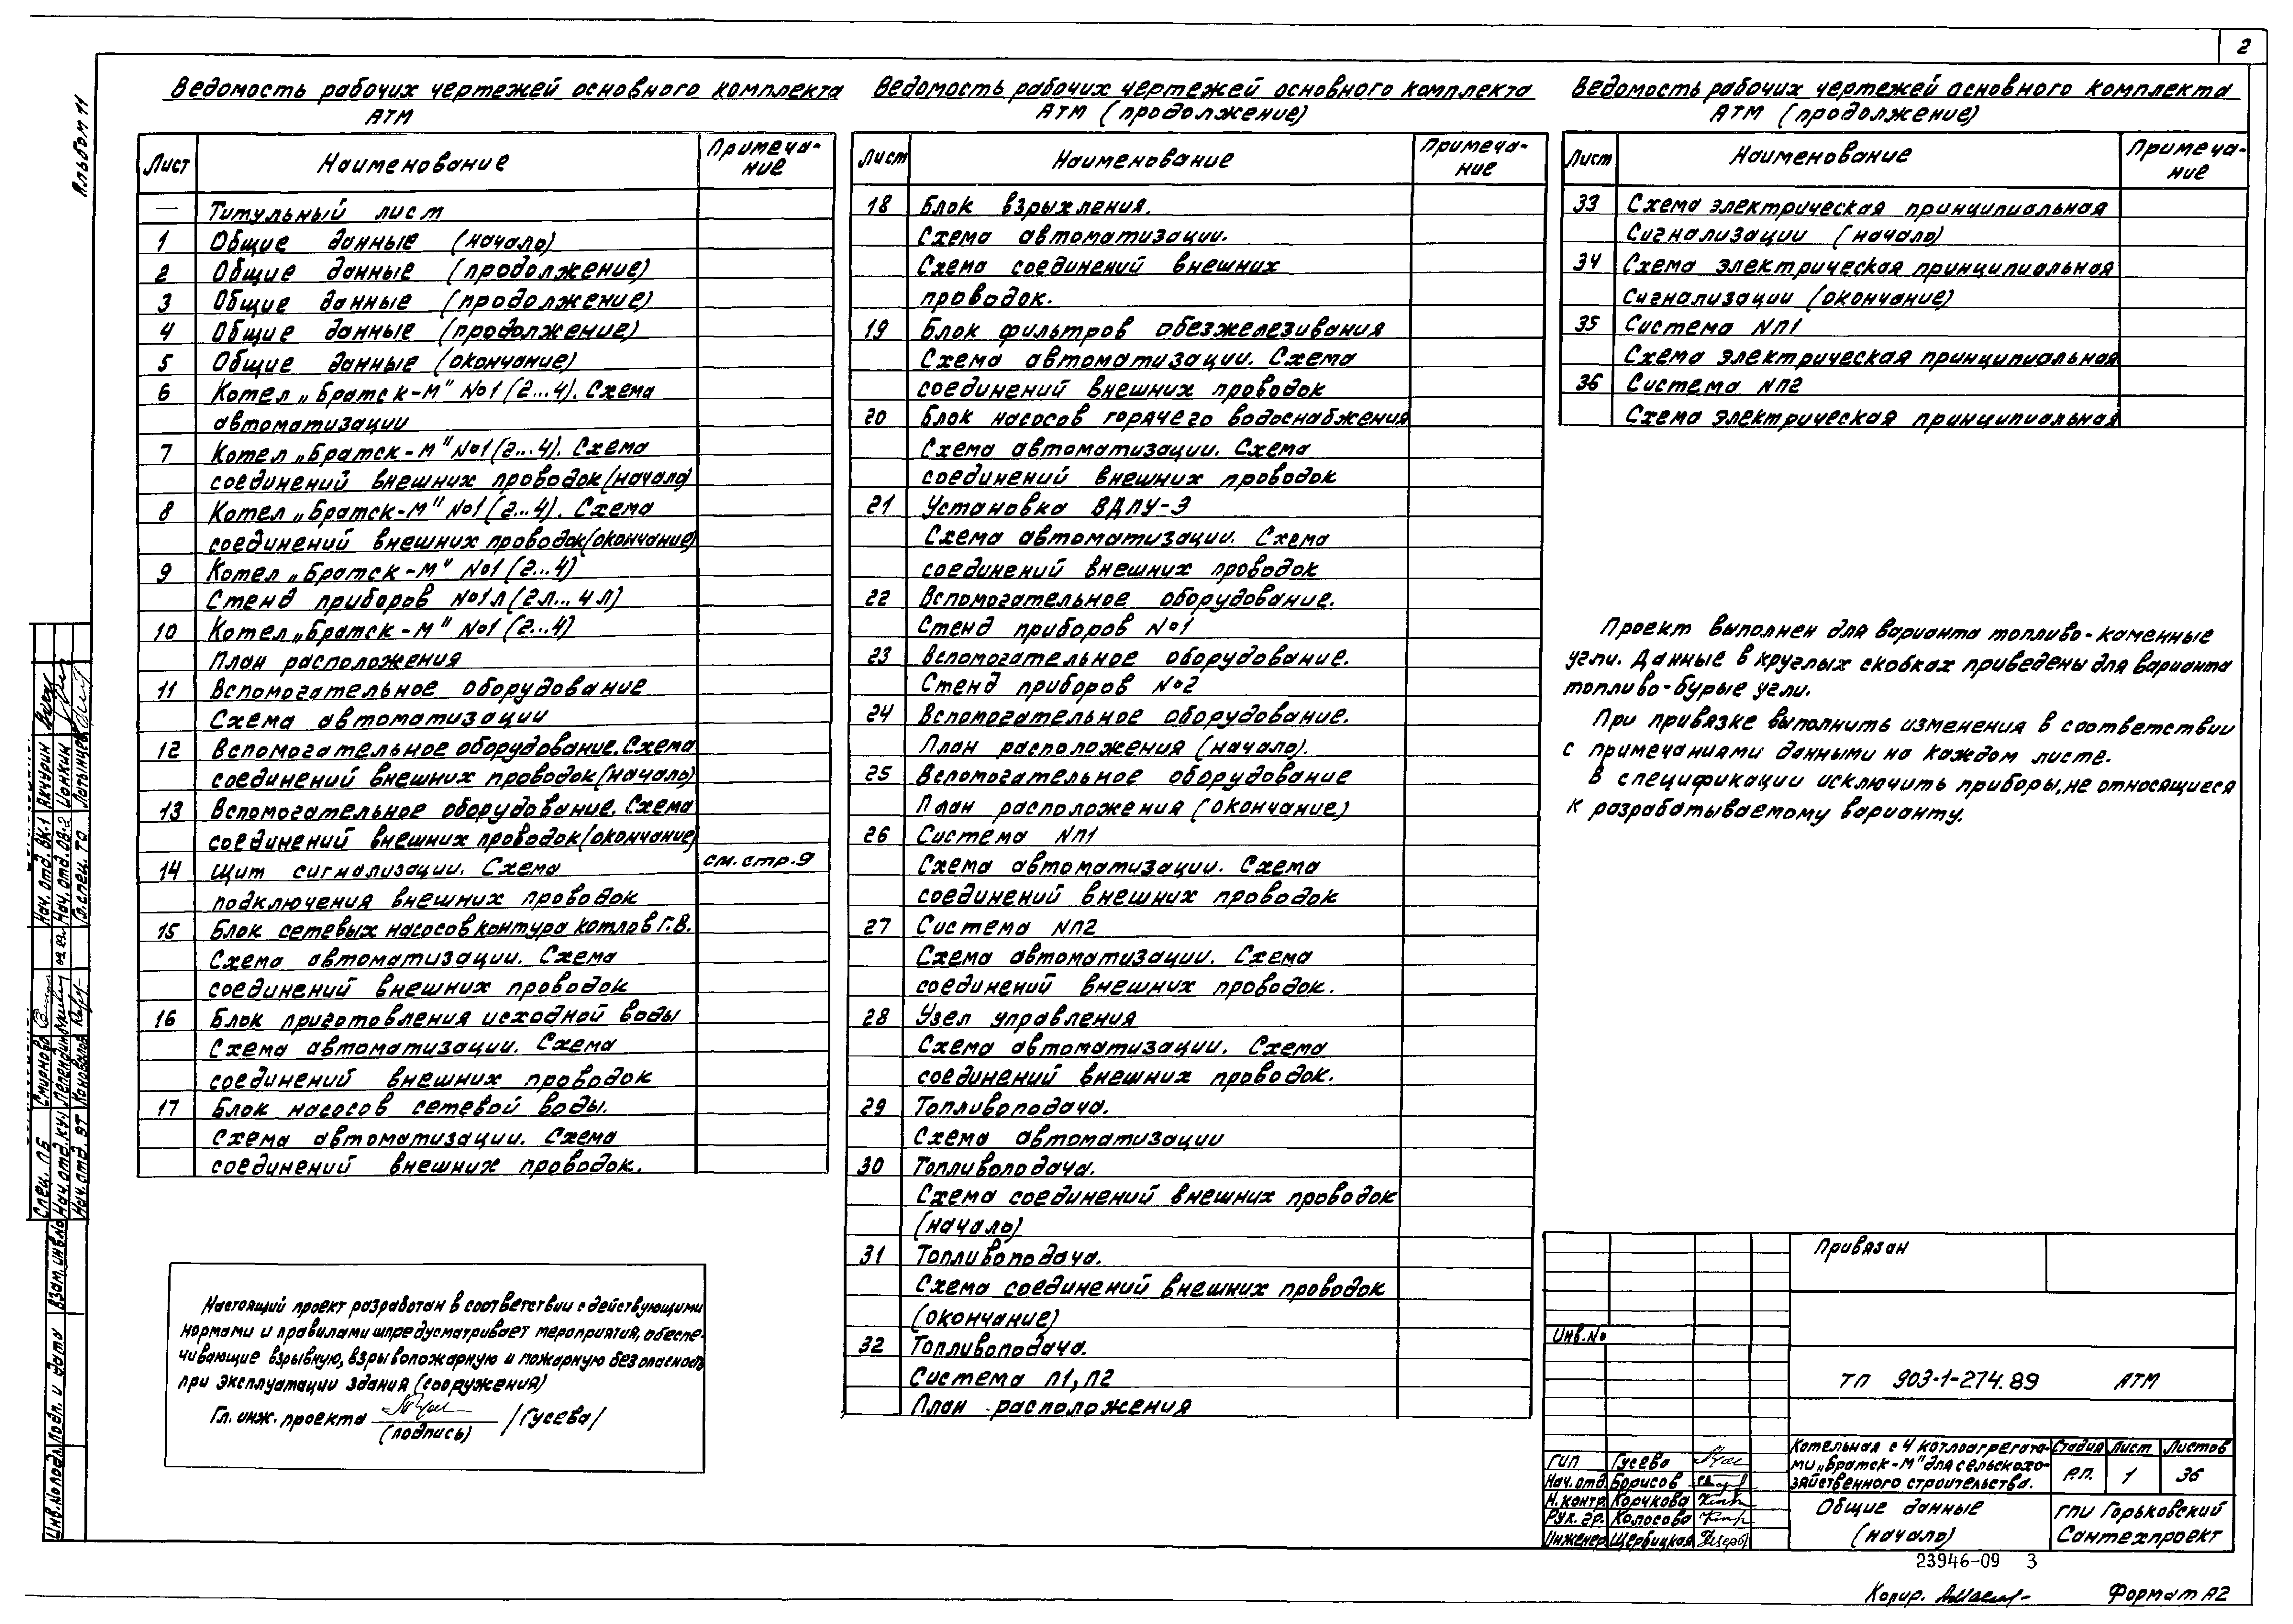 2
Альбом 11
Ведомость рабочих чертежей основного комплекта
АТМ
Лист Наименование Примеча-
ние
— Титульный лист
1 Общие данные (начало)
2 Общие данные (продолжение)
3 Общие данные (продолжение)
4 Общие данные (продолжение)
5 Общие данные (окончание)
6 Котел „Братск-М" №1 (2...4). Схема
автоматизации
7 Котел „Братск-М" №1 (2...4). Схема
соединений внешних проводок (начало)
8 Котел „Братск-М" №1 (2...4). Схема
соединений внешних проводок (окончание)
9 Котел „Братск-М" №1 (2...4)
Стенд приборов №1л (2л...4л)
10 Котел „Братск-М" №1 (2...4)
План расположения
11 Вспомогательное оборудование
Схема автоматизации
12 Вспомогательное оборудование. Схема
соединений внешних проводок (начало)
13 Вспомогательное оборудование. Схема
соединений внешних проводок (окончание)
14 Щит сигнализации. Схема см. стр. 9
подключения внешних проводок
15 Блок сетевых насосов контура котлов Г.В.
Схема автоматизации. Схема
соединений внешних проводок
16 Блок приготовления исходной воды
Схема автоматизации. Схема
соединений внешних проводок
17 Блок насосов сетевой воды.
Схема автоматизации. Схема
соединений внешних проводок.
Настоящий проект разработан в соответствии с действующими
нормами и правилами и предусматривает мероприятия, обеспе-
чивающие взрывную, взрывопожарную и пожарную безопасность
при эксплуатации здания (сооружения)
Гл. инж. проекта /Гусева/
(подпись)
Ведомость рабочих чертежей основного комплекта
АТМ (продолжение)
Лист Наименование Примеча-
ние
18 Блок взрыхления.
Схема автоматизации.
Схема соединений внешних
проводок.
19 Блок фильтров обезжелезивания
Схема автоматизации. Схема
соединений внешних проводок
20 Блок насосов горячего водоснабжения
Схема автоматизации. Схема
соединений внешних проводок
21 Установка ВДПУ-Э
Схема автоматизации. Схема
соединений внешних проводок
22 Вспомогательное оборудование.
Стенд приборов №1
23 Вспомогательное оборудование.
Стенд приборов №2
24 Вспомогательное оборудование.
План расположения (начало).
25 Вспомогательное оборудование
План расположения (окончание)
26 Система NП1
Схема автоматизации. Схема
соединений внешних проводок
27 Система NП2
Схема автоматизации. Схема
соединений внешних проводок.
28 Узел управления
Схема автоматизации. Схема
соединений внешних проводок.
29 Топливоподача.
Схема автоматизации
30 Топливоподача.
Схема соединений внешних проводок
(начало)
31 Топливоподача.
Схема соединений внешних проводок
(окончание)
32 Топливоподача.
Система П1, П2
План расположения
Ведомость рабочих чертежей основного комплекта
АТМ (продолжение)
Лист Наименование Примеча-
ние
33 Схема электрическая принципиальная
Сигнализации (начало)
34 Схема электрическая принципиальная
Сигнализации (окончание)
35 Система NП1
Схема электрическая принципиальная
36 Система NП2
Схема электрическая принципиальная
Проект выполнен для варианта топливо-каменные
угли. Данные в круглых скобках приведены для варианта
топливо-бурые угли.
При привязке выполнить изменения в соответствии
с примечаниями данными на каждом листе.
В спецификации исключить приборы, не относящиеся
к разрабатываемому варианту.
Привязан
Инв. №
ТП 903-1-274.89 АТМ
Котельная с 4 котлоагрегата-
ми „Братск-М" для сельскохо-
зяйственного строительства.
Стадия Лист Листов
Р.П. 1 36
ГИП Гусева
Нач. отд. Борисов
Н. контр. Корчкова
Рук. гр. Колосова
Инженер Щербицкая
Общие данные
(начало)
ГПИ Горьковский
Сантехпроект
23946-09 3
Копир.
Формат А2
Нач. отд. ВК-1 Акчурин
Нач. отд. ОВ-2 Цонкин
Гл. спец. ТО
Спец. ПБ Смирнова
Нач. отд. КУ
Нач. отд. ЭТ Коновалов
Взам. инв. №
Подп. и дата
Инв. № подл.